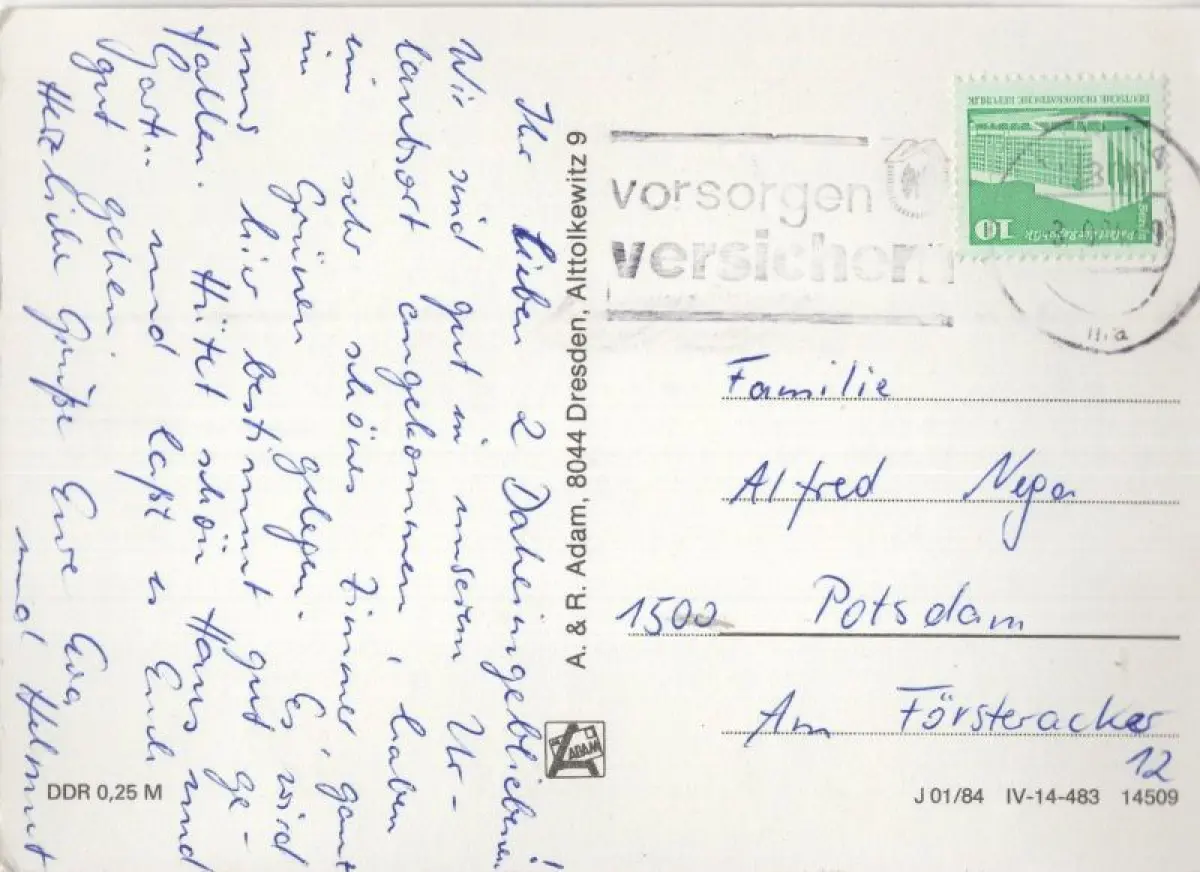 Ihr lieben 2 Daheimgebliebenen!
Wir sind gut in unserem Ur-
laubsort angekommen, haben
ein sehr schönes Zimmer, ganz
in Grünen gelegen. Es wird
uns hier bestimmt gut ge-
fallen. Hütet schön Haus und
Garten und laßt es Euch
gut gehen.
Herzliche Grüße Eure Eva
und Helmut
DDR 0,25 M
A. & R. Adam, 8044 Dresden, Alttolkewitz 9
ADAM
vorsorgen
versichern
DEUTSCHE DEMOKRATISCHE REPUBLIK
10
Palast der Republik
Berlin
Familie
Alfred Nega
1500 Potsdam
Am Försteracker
12
J 01/84 IV-14-483 14509